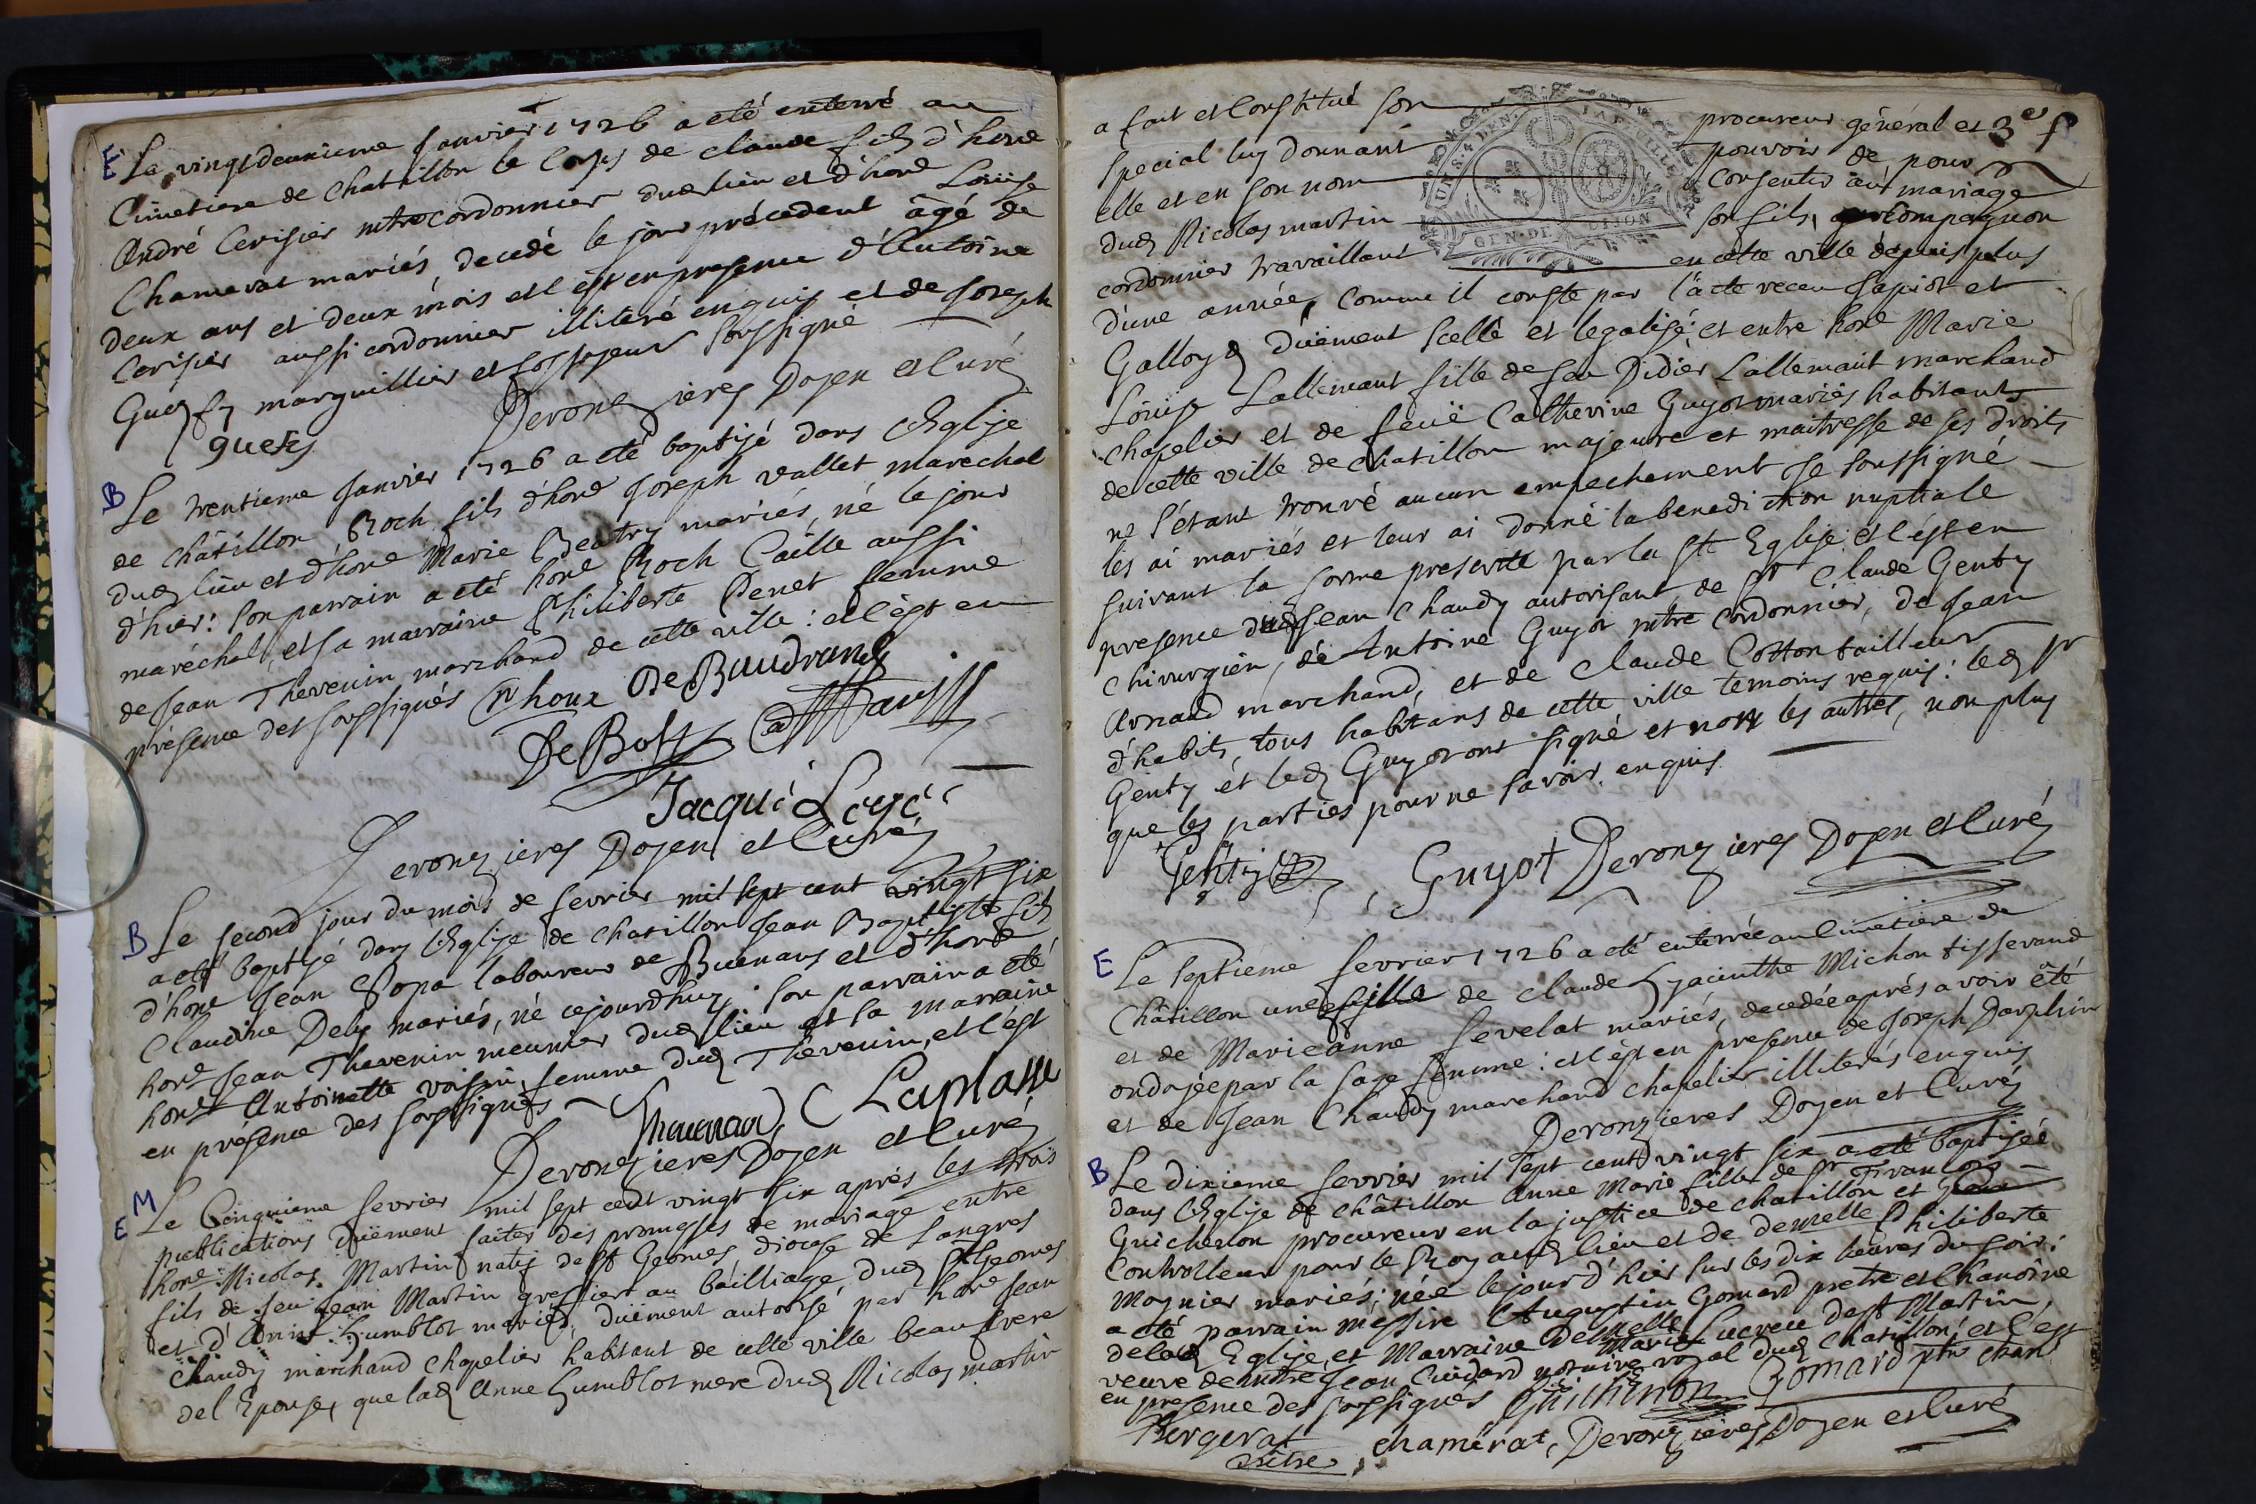 E Le vingtdeuxieme Janvier 1726 a eté enterré au
Cimetiere de Chatillon le Corps de claude fils d'hone
André Cerisier mtre cordonnier dud lieu et d'hone Loüise
Chamerat mariés, decedé le jour précedent âgé de
deux ans et deux mois et c'est en presence d'Antoine
Cerisier aussi cordonnier illiteré enquis et de Joseph
Gueffy marguillier et fossoyeur soussigné
gueffy Deronzieres Doyen et Curé
B Le trentieme Janvier 1726 a eté baptisé dans l'Eglise
de châtillon Roch fils d'hone Joseph vallet maréchal
dud lieu et d'hone Marie Beatry mariés, né le jour
d'hier: son parrain a eté hone Roch Caille aussi
maréchal, et sa marraine Philiberte Penet femme
de Jean Thevenin marchand de cette ville: et c'est en
présence des soussignés De Baudrand
Jacque
Deronzieres Doyen et Curé
B Le second jour du mois de fevrier mil sept cent vingt six
a eté baptisé dans l'Eglise de chatillon Jean Baptiste fils
d'hone Jean Popa laboureur de Buenans et d'hone
Claudine Dely mariés, né cejourdhuy: son parrain a eté
hone Jean Thevenin meunier dud lieu et sa marraine
hone Antoinette voisin femme dud Thevenin, et c'est
en présence des soussignés Laplasse
Deronzieres Doyen et Curé
M Le Cinquieme fevrier mil sept cent vingt six après les trois
E publications düement faites des promesses de mariage entre
hone Nicolas Martin natif de St Geomes diocese de Langres
fils de feu Jean Martin greffier au bailliage dud St Geomes
et d'Anne Humblot mariés, düement autorisé par hone Jean
Chaudy marchand chapelier habitant de cette ville beaufrere
de l'Epouse, que lad Anne Humblot mere dud Nicolas martin
3e f
a fait et Constitué son procureur général et
special luy donnant pouvoir de pour
elle et en son nom Consentir au mariage
dud Nicolas martin son fils, compagnon
cordonnier travaillant en cette ville depuis plus
d'une année, comme il conste par l'acte receu Sapiot et
Galloy düement scellé et legalisé: et entre hone Marie
Loüise Lallemant fille de feu Didier Lallemant marchand
chapelier et de feüe Catherine Guyot mariés habitants
de cette ville de chatillon majeure et maitresse de ses droits
ne s'étant trouvé aucun empechement Je soussigné
les ai mariés et leur ai donné la benediction nuptiale
suivant la forme prescritte par la Ste Eglise et c'est en
presence dud Jean Chaudy autorisant, de Sr Claude Genty
chirurgien, de Antoine Guyot mtre Cordonnier, de Jean
Arnaud marchand, et de Claude Cotton tailleur
d'habits tous habitans de cette ville temoins requis: led Sr
Genty et led Guyot ont signé et non les autres, non plus
que les parties pour ne savoir enquis.
Genty Guyot Deronzieres Doyen et Curé
E Le Septieme fevrier 1726 a eté enterrée au Cimetiere de
Châtillon une fille de Claude Hyacinthe Michon tisserand
et de Marieanne Sevelat mariés, decedée aprés avoir été
ondoyée par la sage femme: et c'est en presence de Joseph Dauphin
et de Jean Chaudy marchand chapelier illiterés enquis
Deronzieres Doyen et Curé
B Le dixieme fevrier mil sept cent vingt six a eté baptisée
dans l'Eglise de châtillon Anne Marie fille de Sr Francois
Guichenon procureur en la justice de chatillon et
Controlleur pour le Roy aud lieu et de demzelle Philiberte
Moynier mariés; née le jour d'hier sur les dix heures du soir:
a eté parrain messire Augustin Gomard pretre et Chanoine
de lad Eglise, et Marraine Demzelle Marie Lucrece de St Martin,
veuve de mtre Jean Cuidard notaire royal dud Chatillon et c'est
en presence des soussignés Guichenon Gomard ptre chan
Bergerat chamerat, Deronzieres Doyen et Curé